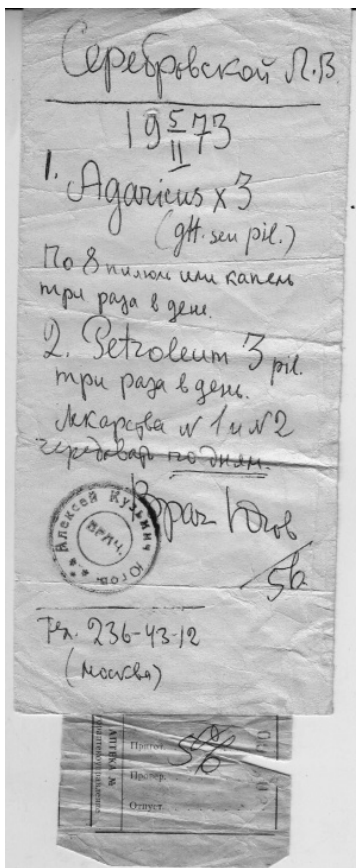 Серебровской Л.В.
19 5/II 73
1. Agaricus x 3
(gtt. seu pil.)
По 8 пилюль или капель
три раза в день.
2. Petroleum 3 pil.
три раза в день.
Лекарства N 1 и N 2
чередовать по дням.
Врач Югов
Алексей Кузьмич Югов
ВРАЧ
Тел. 236-43-12
(Москва)
АПТЕКА №
Пригот.
Провер.
Отпуст.